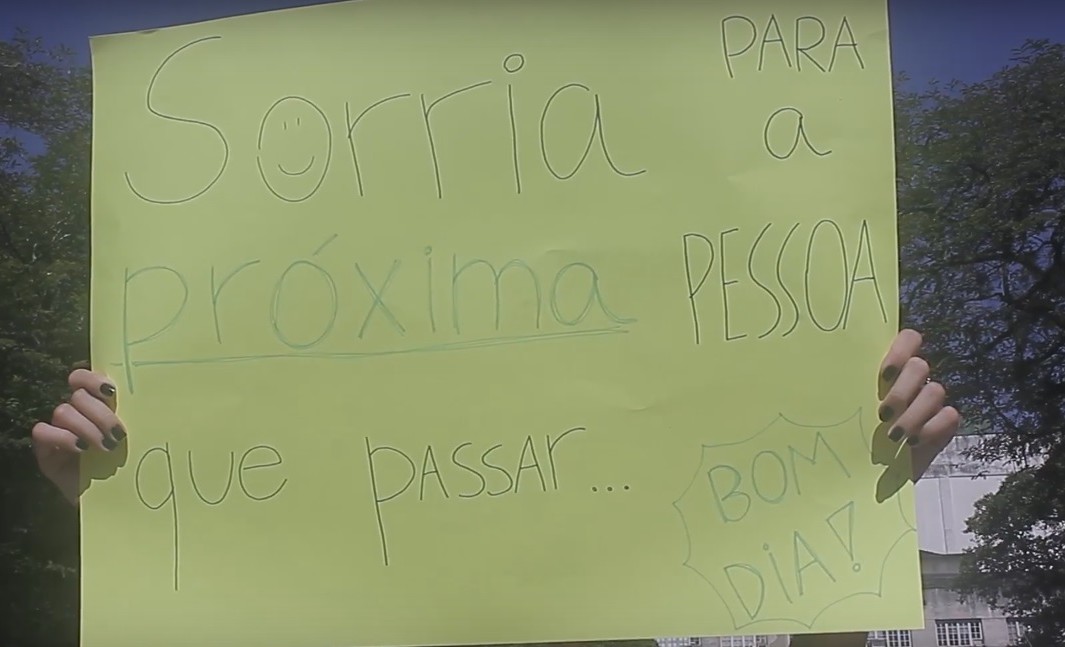 Sorria PARA a
próxima PESSOA
que PASSAr...
BOM
DiA!